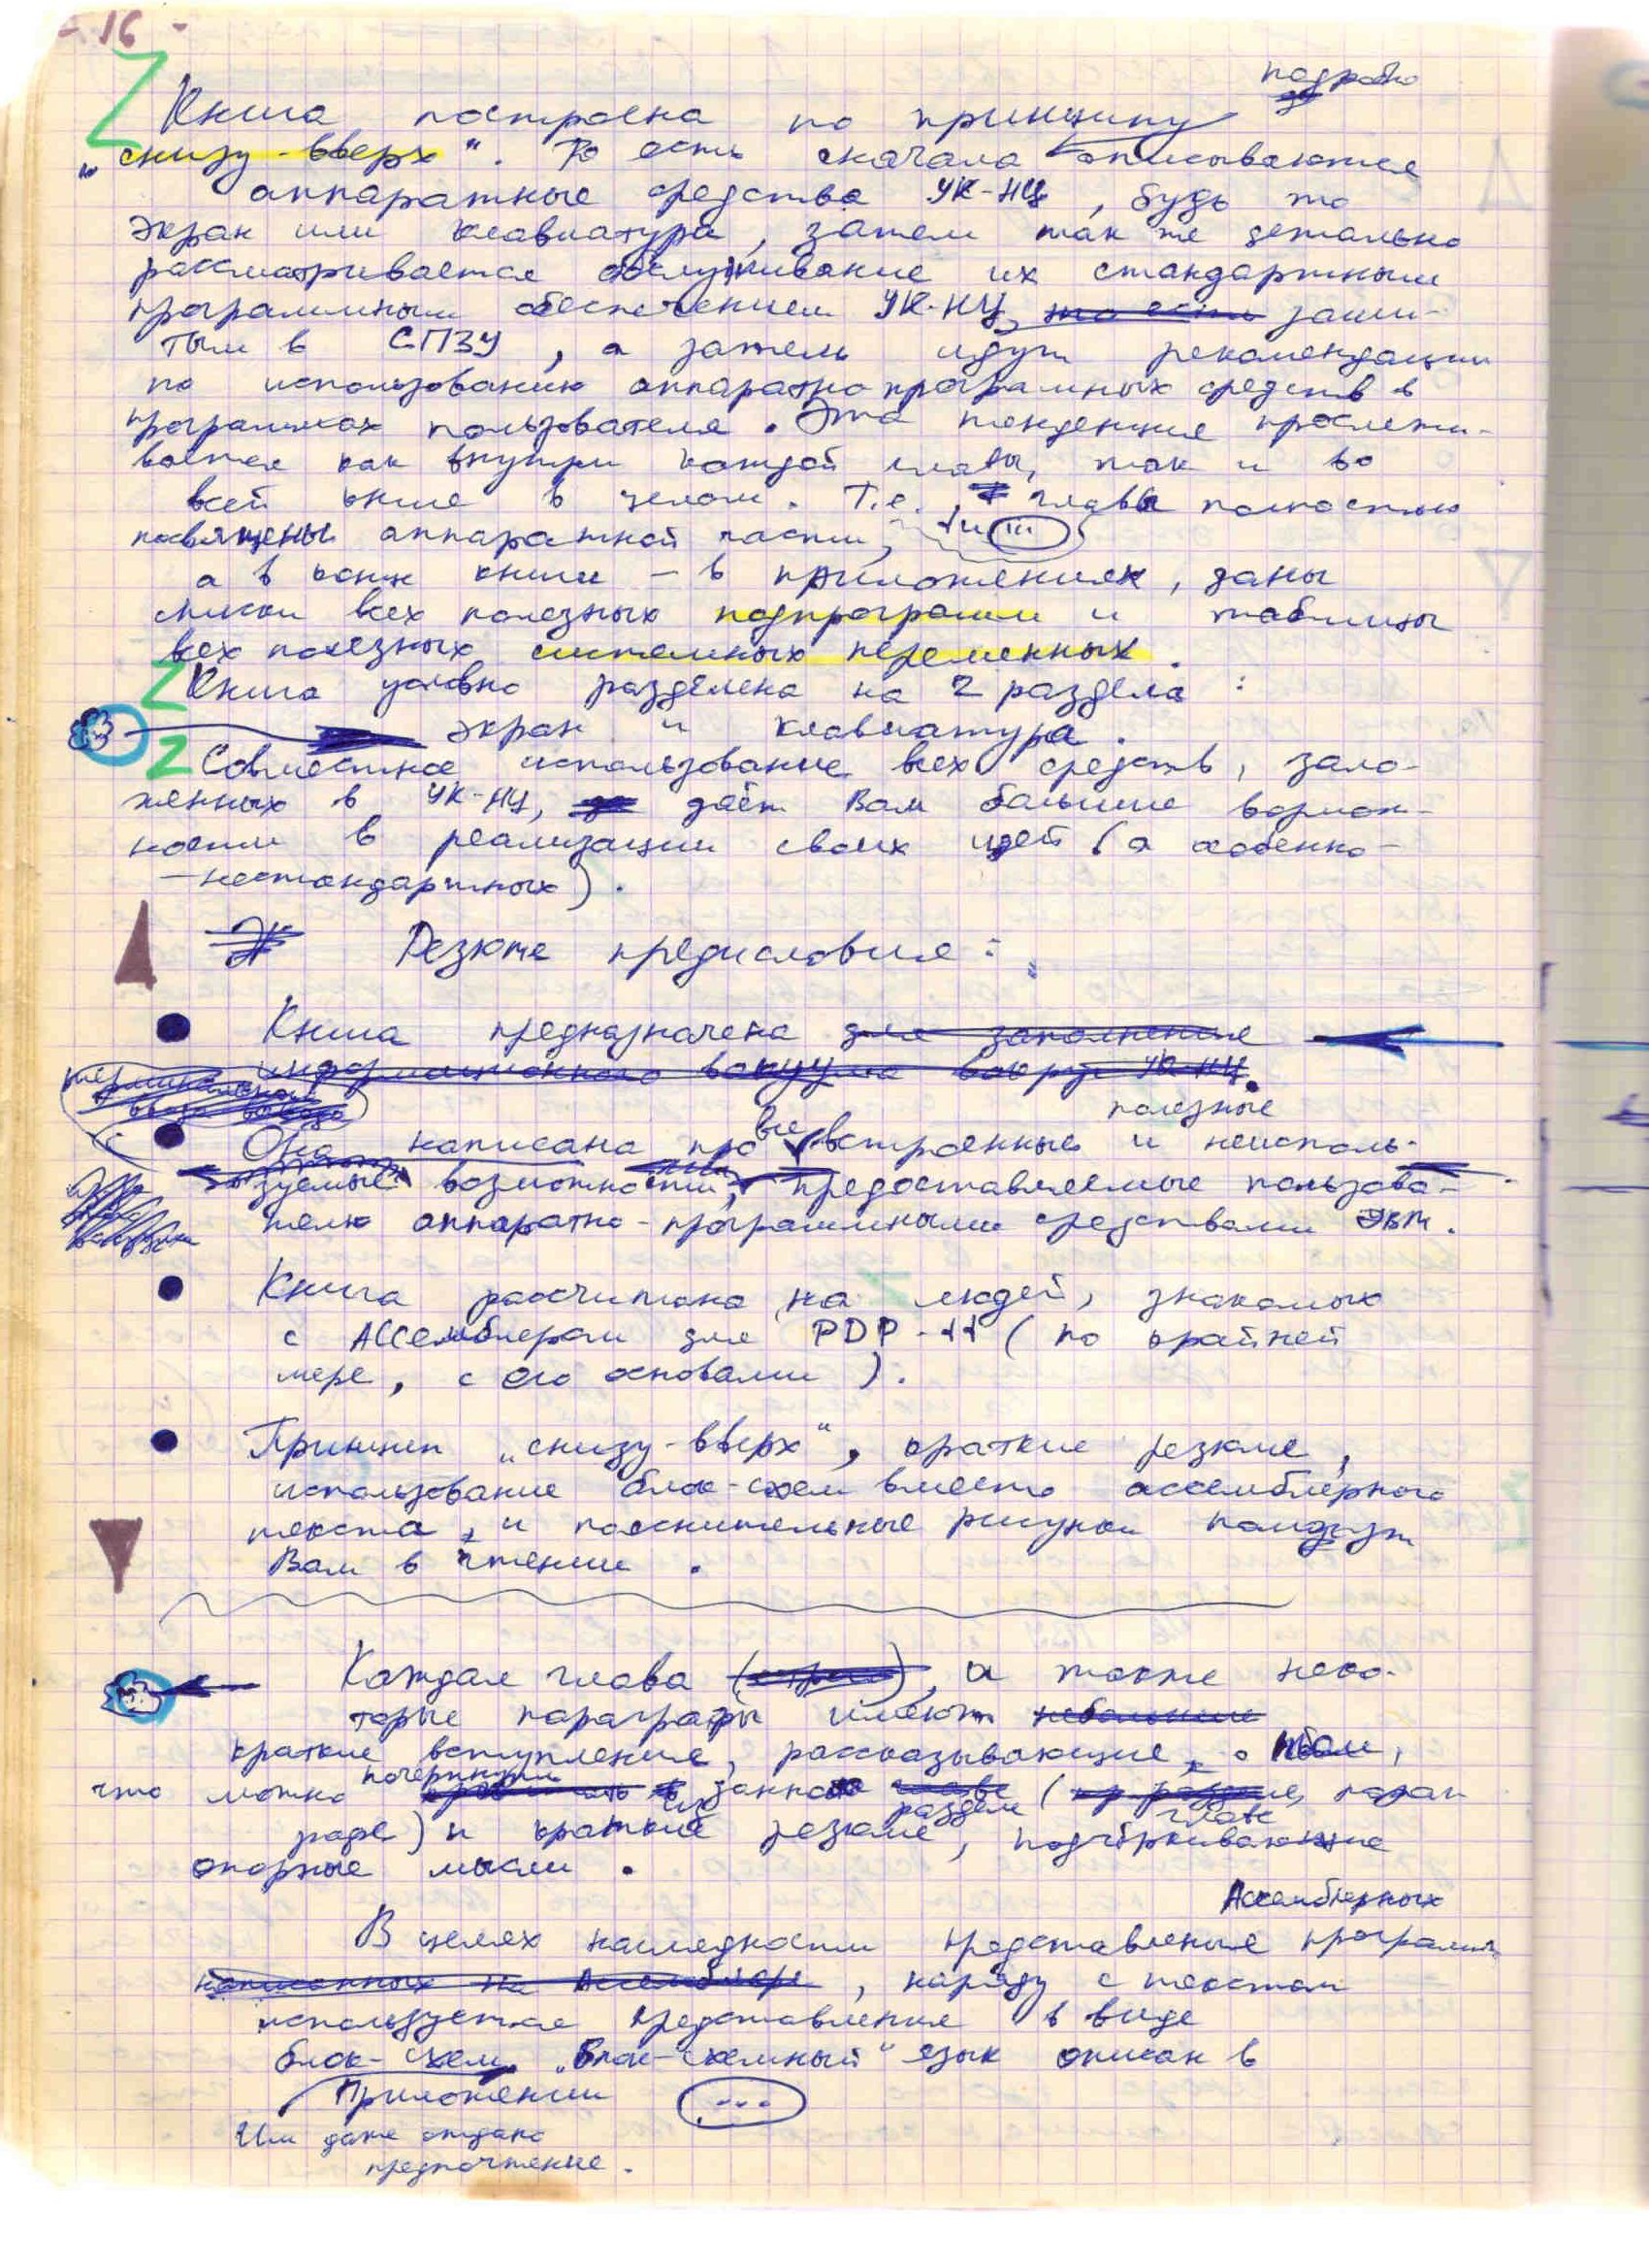 - 16 -
подробно
Книга построена по принципу
„снизу-вверх". То есть сначала описываются
аппаратные средства УК-НЦ, будь то
экран или клавиатура, затем так же детально
рассматривается обслуживание их стандартным
програмным обеспечением УК-НЦ, то есть заши-
тым в СПЗУ, а затем идут рекомендации
по использованию аппаратно програмных средств в
програмах пользователя. Эта тенденция прослежи-
вается как внутри каждой главы, так и во
всей книге в целом. Т.е., главы полностью
I и III
посвящены аппаратной части,
а в конце книги - в приложениях, даны
списки всех полезных подпрограмм и таблицы
всех полезных системных переменных.
Книга условно разделена на 2 раздела:
экран и клавиатура.
Совместное использование всех средств, зало-
женных в УК-НЦ, даёт Вам большие возмож-
ности в реализации своих идей (а особенно -
- нестандартных).
Резюме предисловия:
Книга предназначена для заполнения
информационного вакуума вокруг УК-НЦ.
полезные
все
Она написана про встроенные и неисполь-
зуемые возможности, предоставляемые пользова-
телю аппаратно-програмными средствами ЭВМ.
Книга рассчитана на людей, знакомых
с Ассемблером для PDP-11 (по крайней
мере, с его основами).
Принцип „снизу-вверх", краткие резюме,
использование блок-схем вместо ассемблерного
текста, и пояснительные рисунки помогут
Вам в чтении.
Каждая глава, а также неко-
торые параграфы имеют небольшие
краткие вступления, рассказывающие, о том,
что можно почерпнуть
из данного раздела (главе, параг
рафе) и краткие резюме, подчёркивающие
опорные мысли.
Ассемблерных
В целях наглядности представления программ
написанных на Ассемблере, наряду с текстом
используется представление в виде
блок-схем. „Блок-схемный" язык описан в
Приложении ...
Им даже отдано
предпочтение.